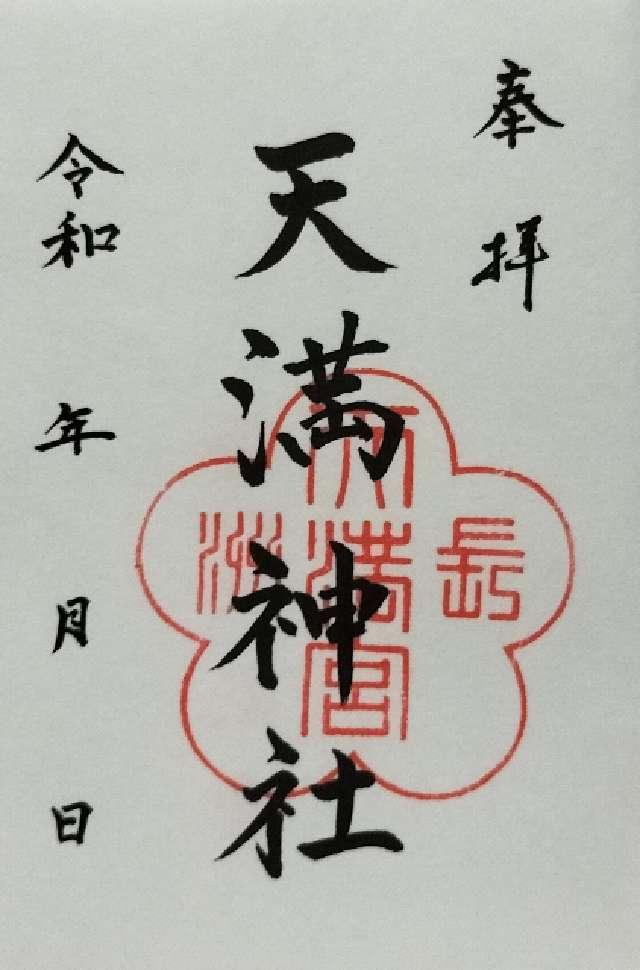 奉拝
長洲
天満宮
天満神社
令和 年 月 日